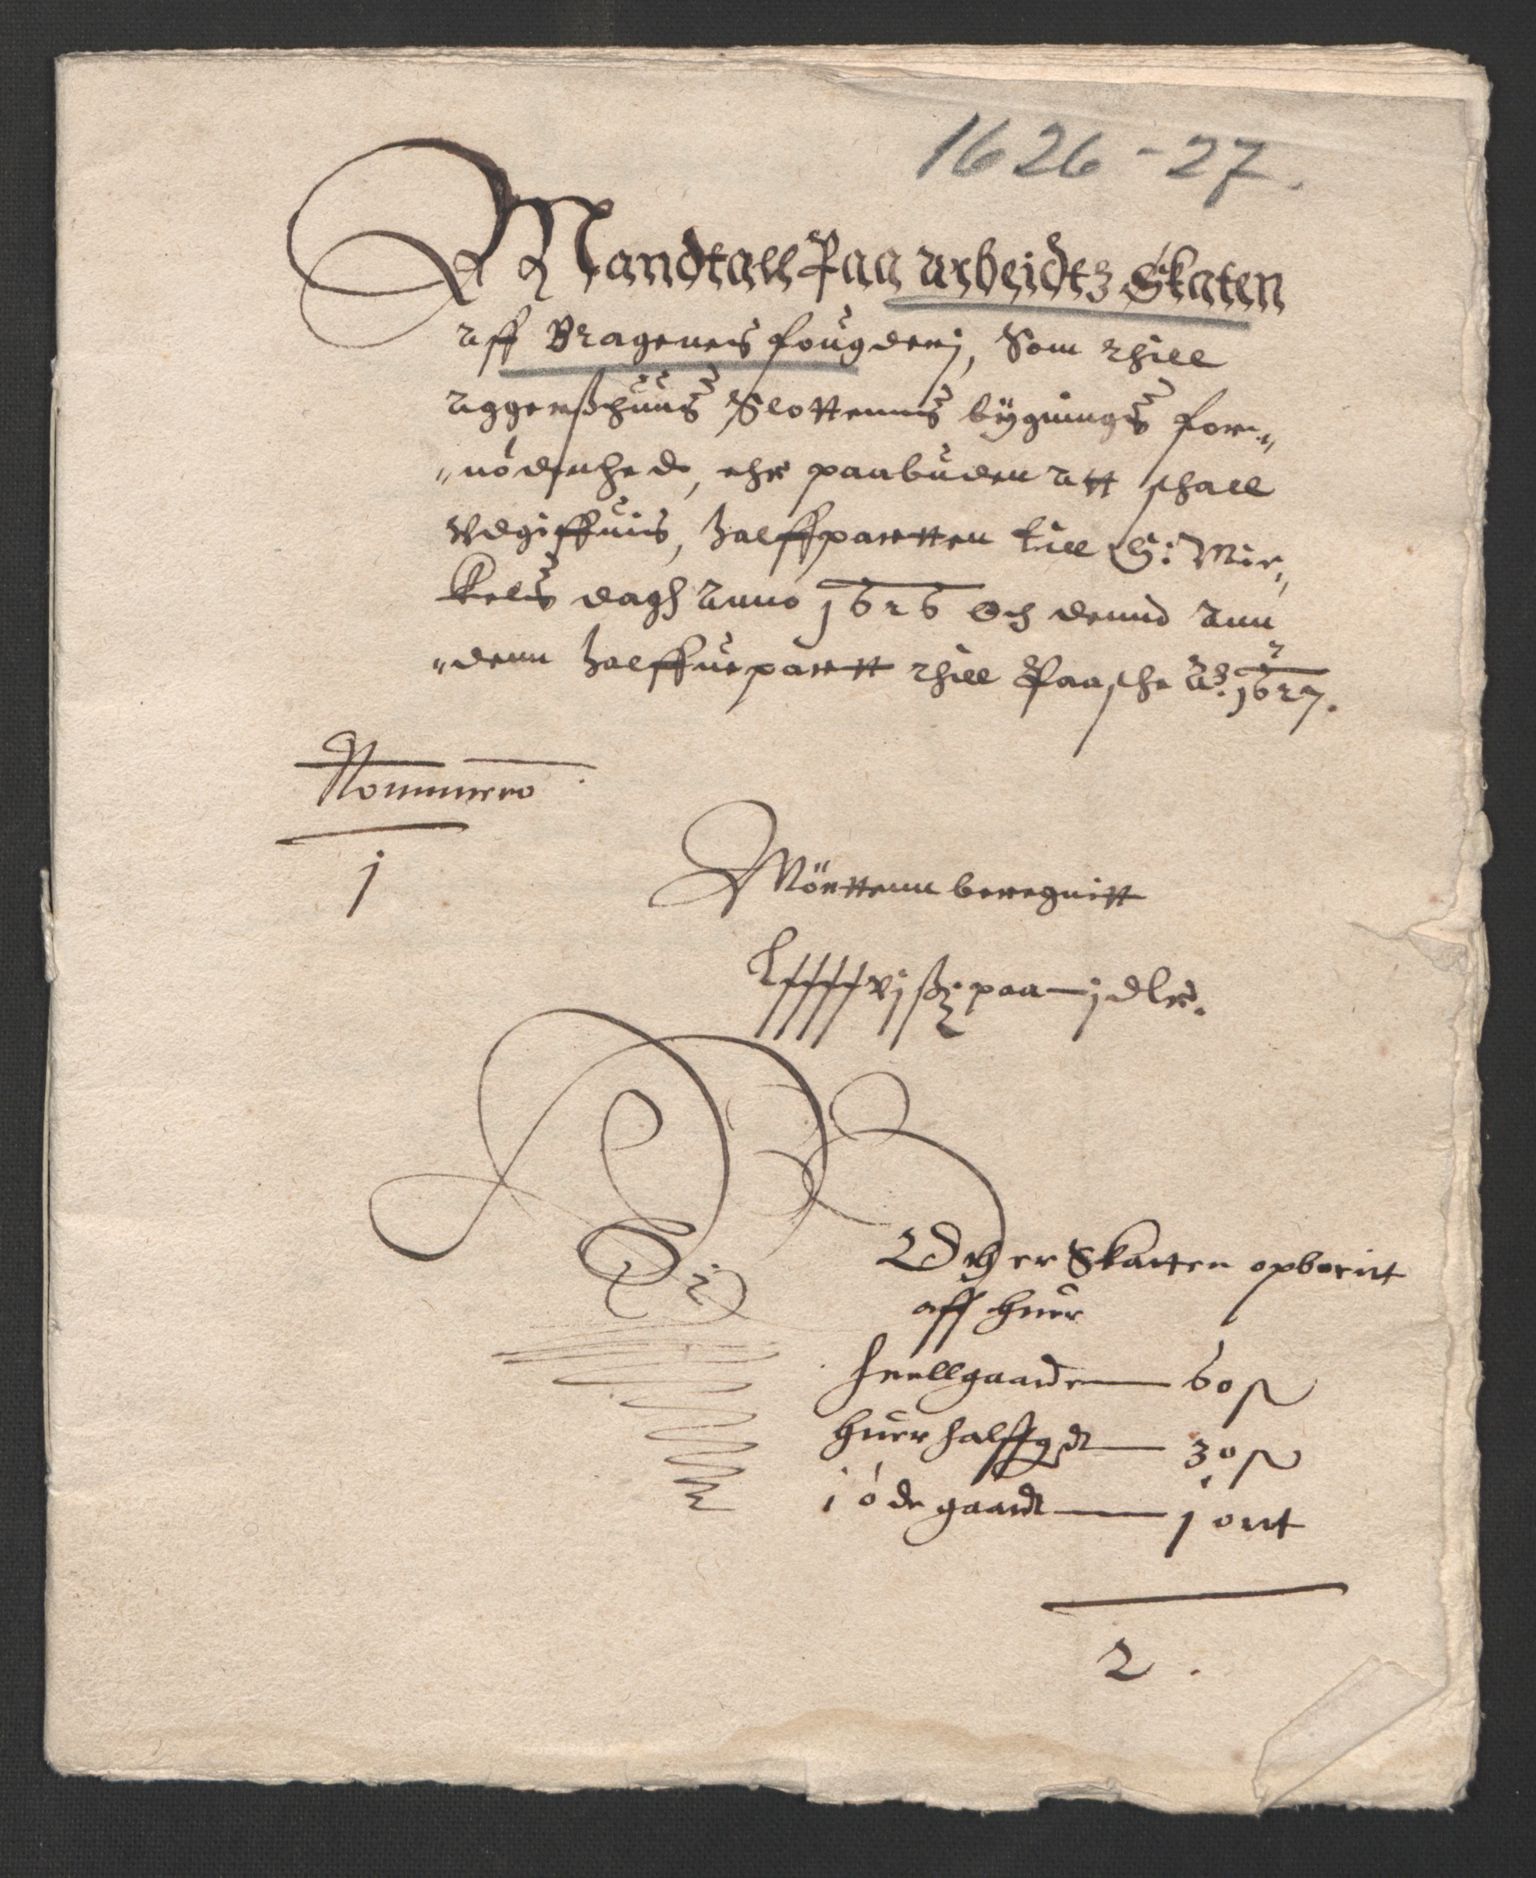 1626-27.
Mandtall Paa arbeidtz Skaten
aff Bragenes fougderj, Som thill
aggershuus Slottenns bÿgnings for-
nödenhed, ehr paabuden att schall
vdgiffuis, halffpartten till S: Mic-
kels dagh Anno 1626 Och dennd ann
denn halffuepartt thill Paasche A͠o: 1627.
Nommero
1
Mönttenn beregnitt
paa j dlr.
er Skatten opborit
aff huer
fuellgaarde 60 ß
huer halffgdt 30 ß
j öde gaardt j ortt
2.